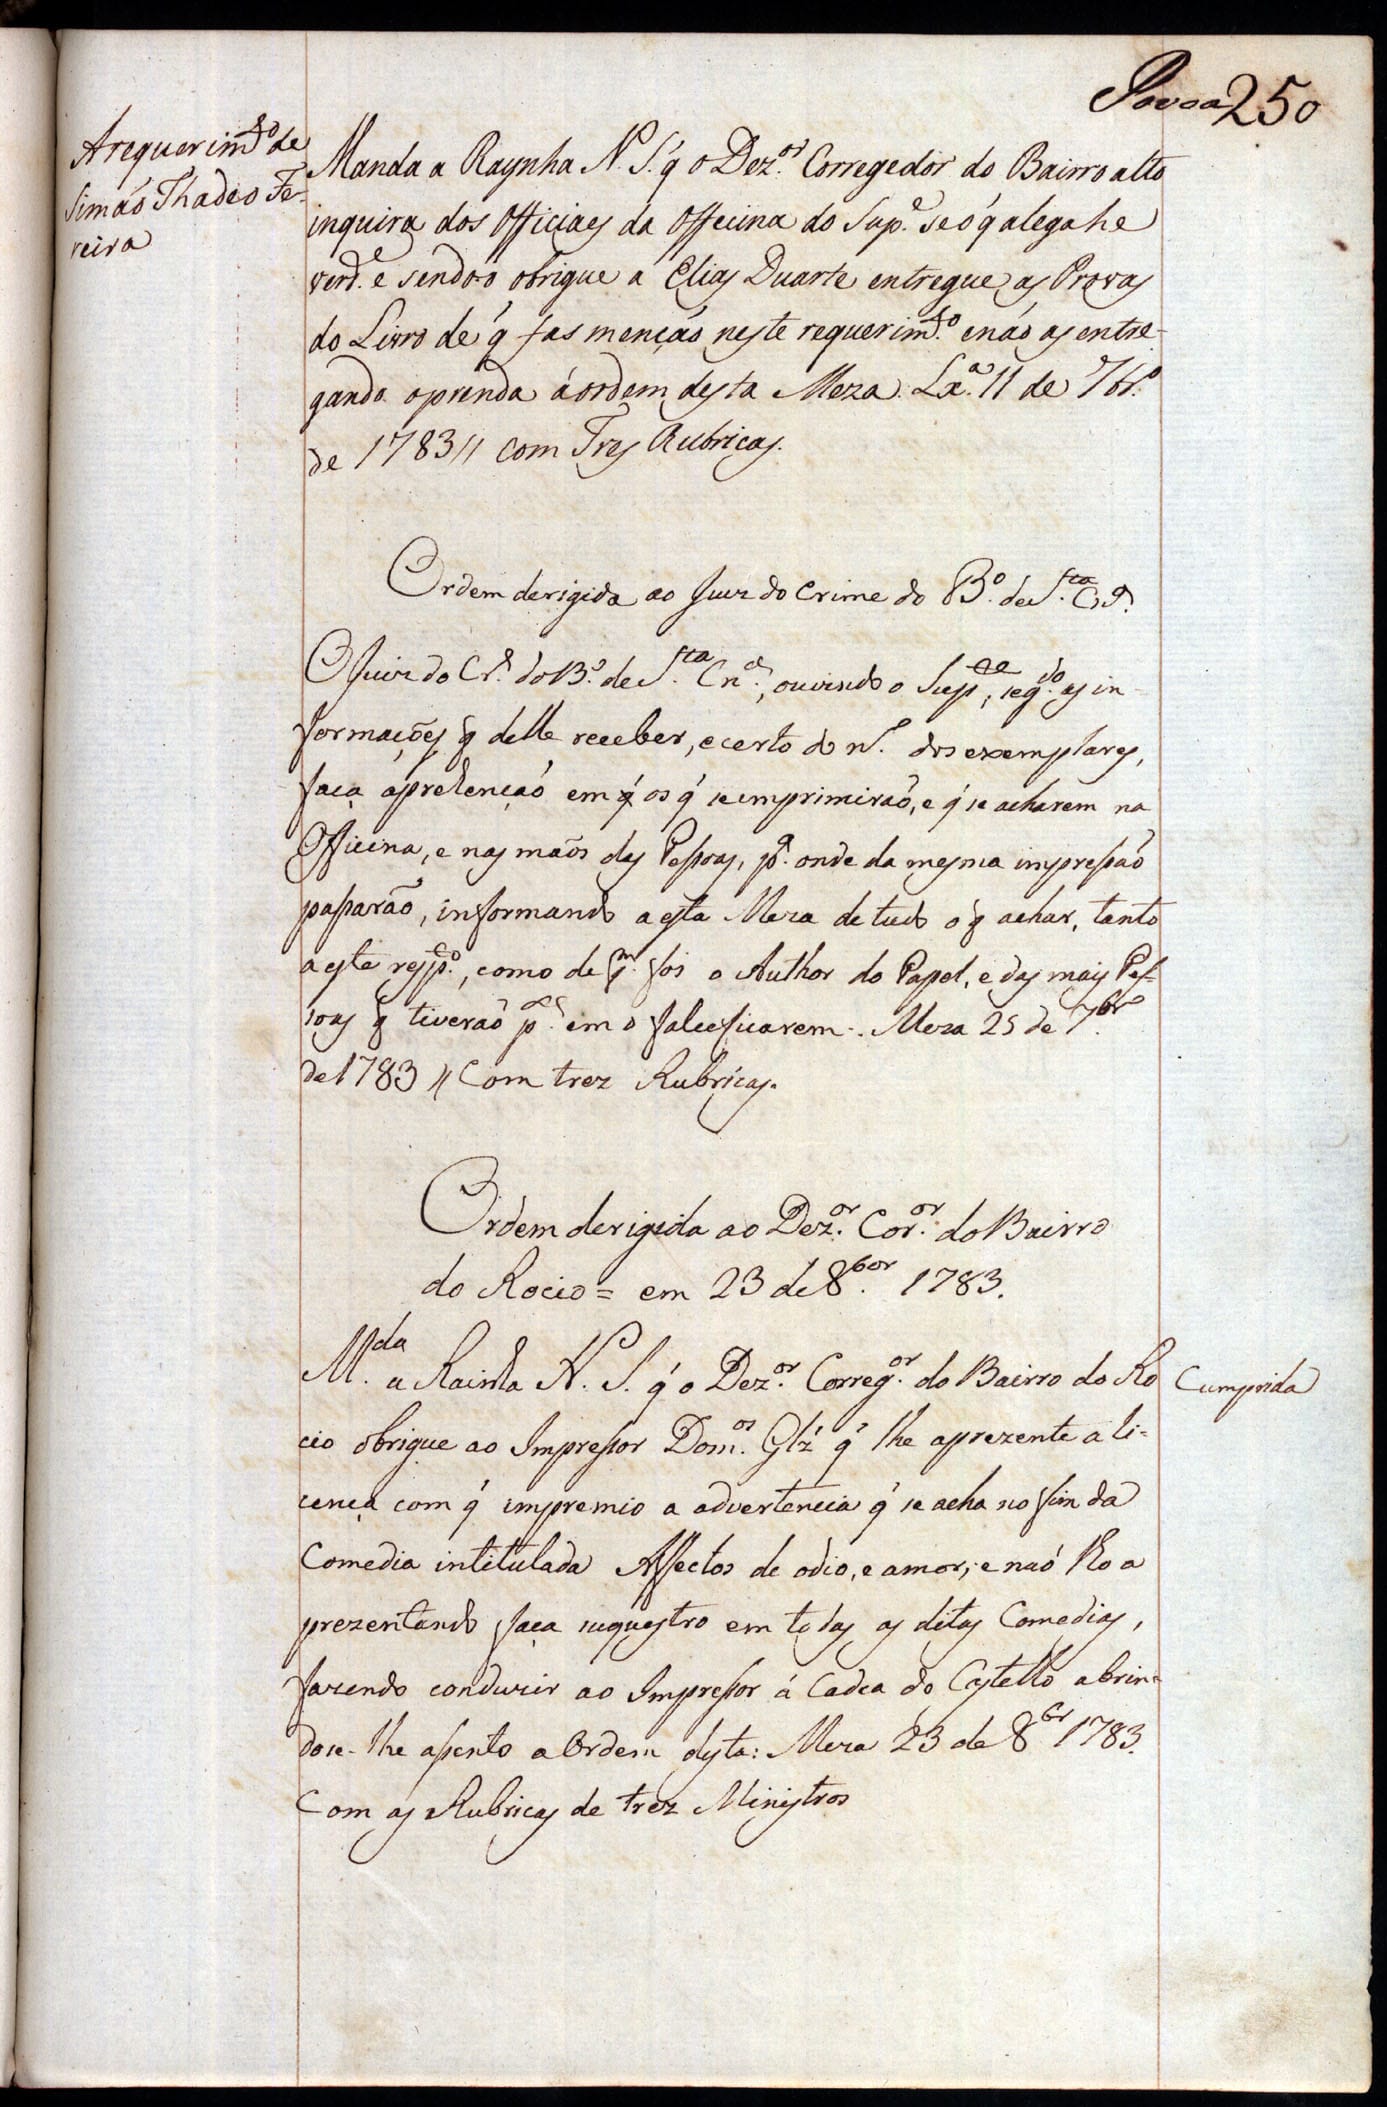 Povoa 250
A requerim.to de
Simaó Thadeo Fe-
reira
Manda a Raynha N. S. q́ o Dez.or Corregedor do Bairro alto
inquira dos Officiaes da Officina do Sup.e se o q́ alega he
verd.e e sendo-o obrigue a Elias Duarte entregue as Provas
do Livro de q́ fas mençaó neste requerim.to e naó as entre-
gando o prenda á ordem desta Meza. Lx.a 11 de 7br.o
de 1783 // com Tres Rubricas.
Ordem derigida ao Juiz do Crime do B.o de S.ta C.a
O Juiz do Cr.e do B.o de S.ta Cn.a, ouvindo o Sup.e, seg.do as in-
formações q̃ delle receber, e certo do n.o dos exemplares,
faça apretençaó em q́ os q́ se imprimiraõ, e q́ se acharem na
Officina, e nas maõs das Pessoas, p.a onde da mesma impressaõ
passaraõ, informando a esta Meza de tudo o q̃ achar, tanto
a este resp.to, como de q.m foi o Author do Papel, e das mais Pes-
soas q̃ tiveraõ p.e em o falceficarem. Meza 25 de 7.bro
de 1783 // Com trez Rubricas.
Ordem derigida ao Dez.or Cor.or do Bairro
do Rocio = em 23 de 8.bor 1783.
M.da a Rainha N. S. q́ o Dez.or Correg.or do Bairro do Ro
Cumprida
cio obrigue ao Impressor Dom.os Glź q́ lhe aprezente a li-
cença com q́ impremio a advertencia q́ se acha no fim da
Comedia intitulada Affectos de odio, e amor; e naó lho a
prezentando faça sequestro em todas as ditas Comedias,
fazendo conduzir ao Impressor á Cadea do Castello abrin-
dose-lhe assento a Ordem desta: Meza 23 de 8.br 1783.
Com as Rubricas de trez Ministros